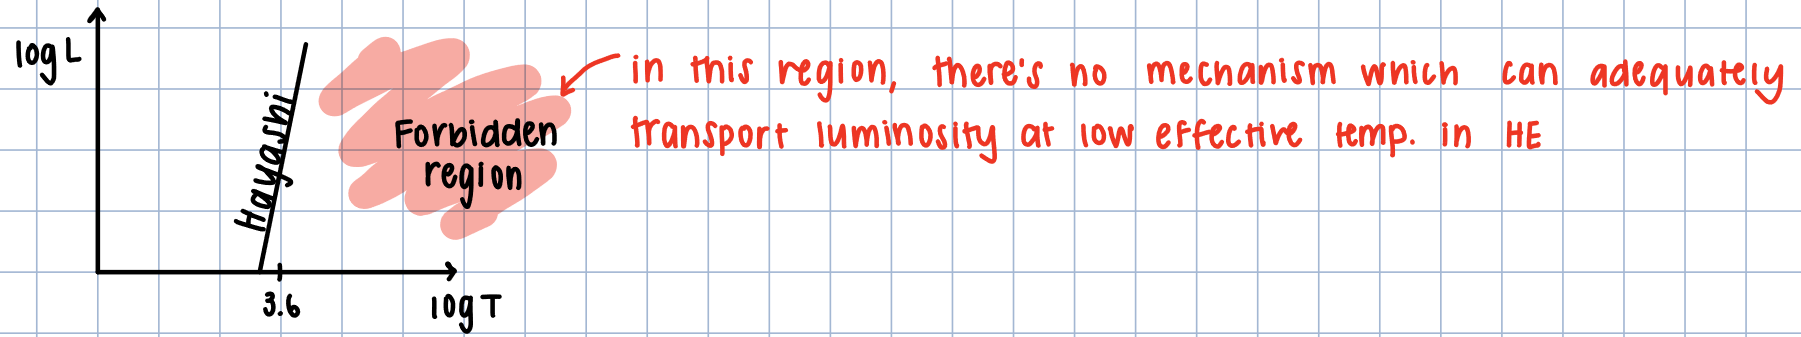 log L
Hayashi
Forbidden
region
in this region, there's no mechanism which can adequately
transport luminosity at low effective temp. in HE
3.6
log T